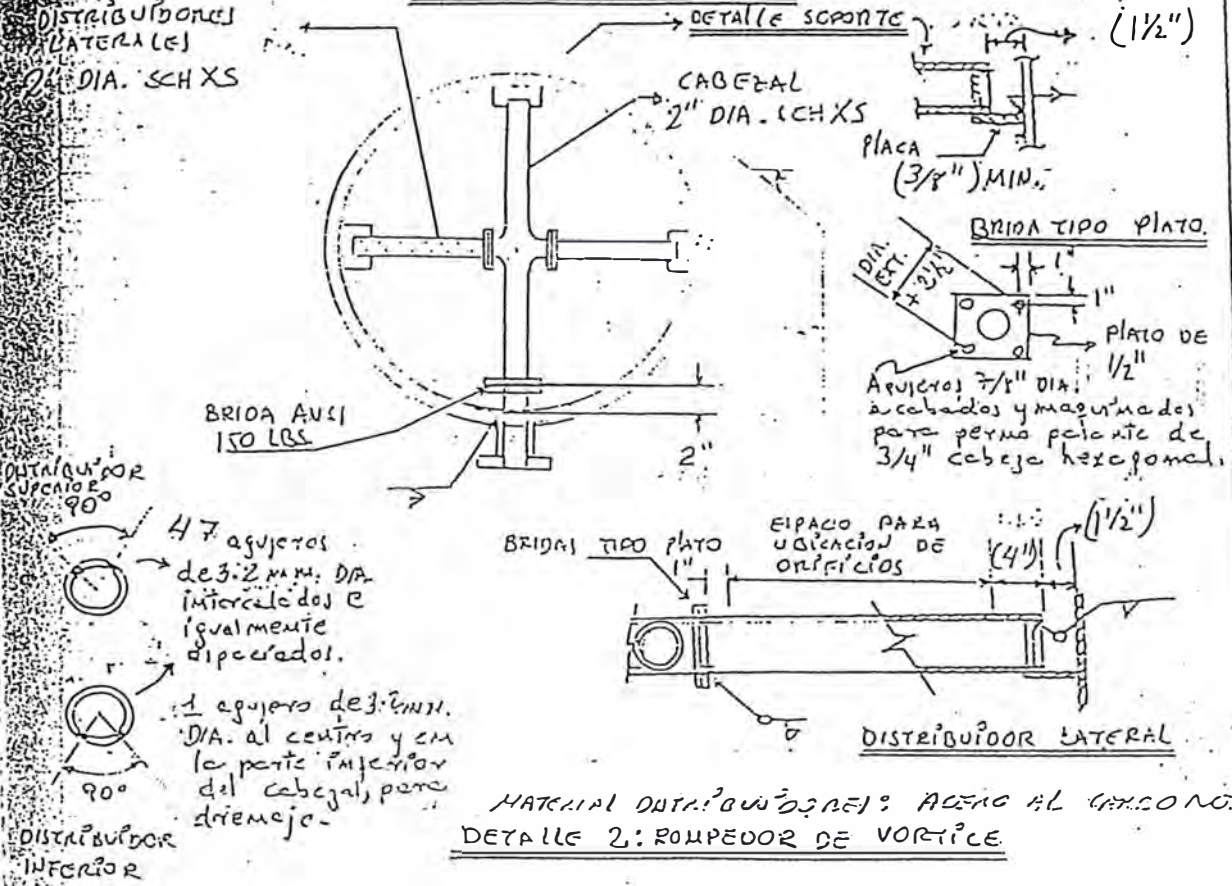 DISTRIBUIDORES
LATERALES
2" DIA. SCH XS
DETALLE SOPORTE
(1½")
CABEZAL
2" DIA. SCH XS
PLACA
(3/8") MIN.
BRIDA TIPO PLATO
DIA.
EXT.
+ 2½"
1"
1"
PLATO DE
1/2"
Agujeros 7/8" DIA.
acabados y maquinados
para perno pasante de
3/4" cabeza hexagonal.
BRIDA ANSI
150 LBS
2"
DISTRIBUIDOR
SUPERIOR
90°
47 agujeros
de 3.2 mm. DIA.
intercalados e
igualmente
espaciados.
1 agujero de 3.2 mm.
DIA. al centro y en
la parte inferior
del cabezal, para
drenaje.
90°
DISTRIBUIDOR
INFERIOR
BRIDAS TIPO PLATO
1"
ESPACIO PARA
UBICACION DE
ORIFICIOS
(4")
(1½")
DISTRIBUIDOR LATERAL
MATERIAL DISTRIBUIDORES: ACERO AL CARBONO
DETALLE 2: ROMPEDOR DE VORTICE